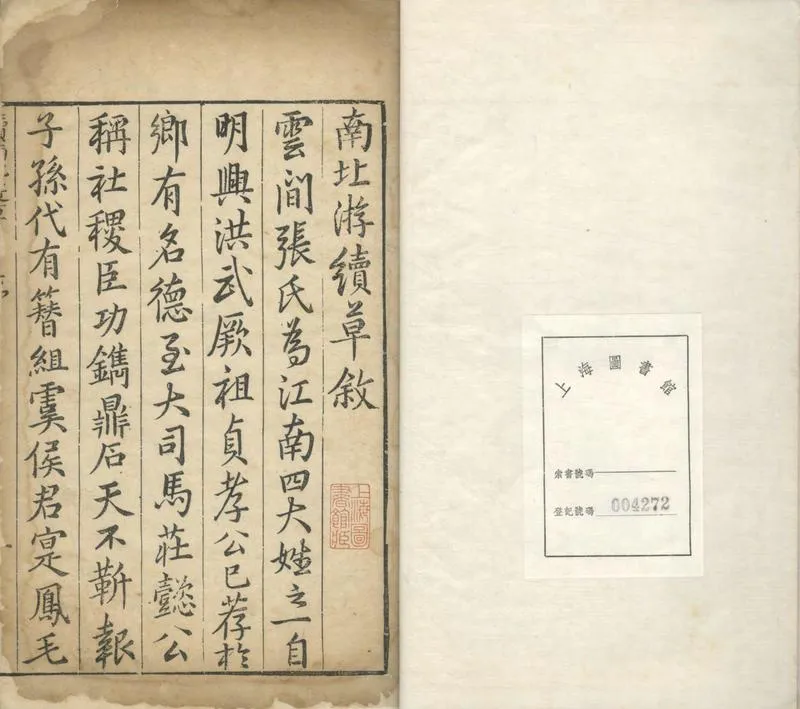 南北游續草敘
雲間張氏為江南四大姓之一自
明興洪武厥祖貞孝公已荐於
鄉有名德至大司馬莊懿公
稱社稷臣功鐫鼎石天不靳報
子孫代有簪組虞侯君寔鳳毛
上海圖書館藏
上海圖書館
索書號碼
登記號碼 004272